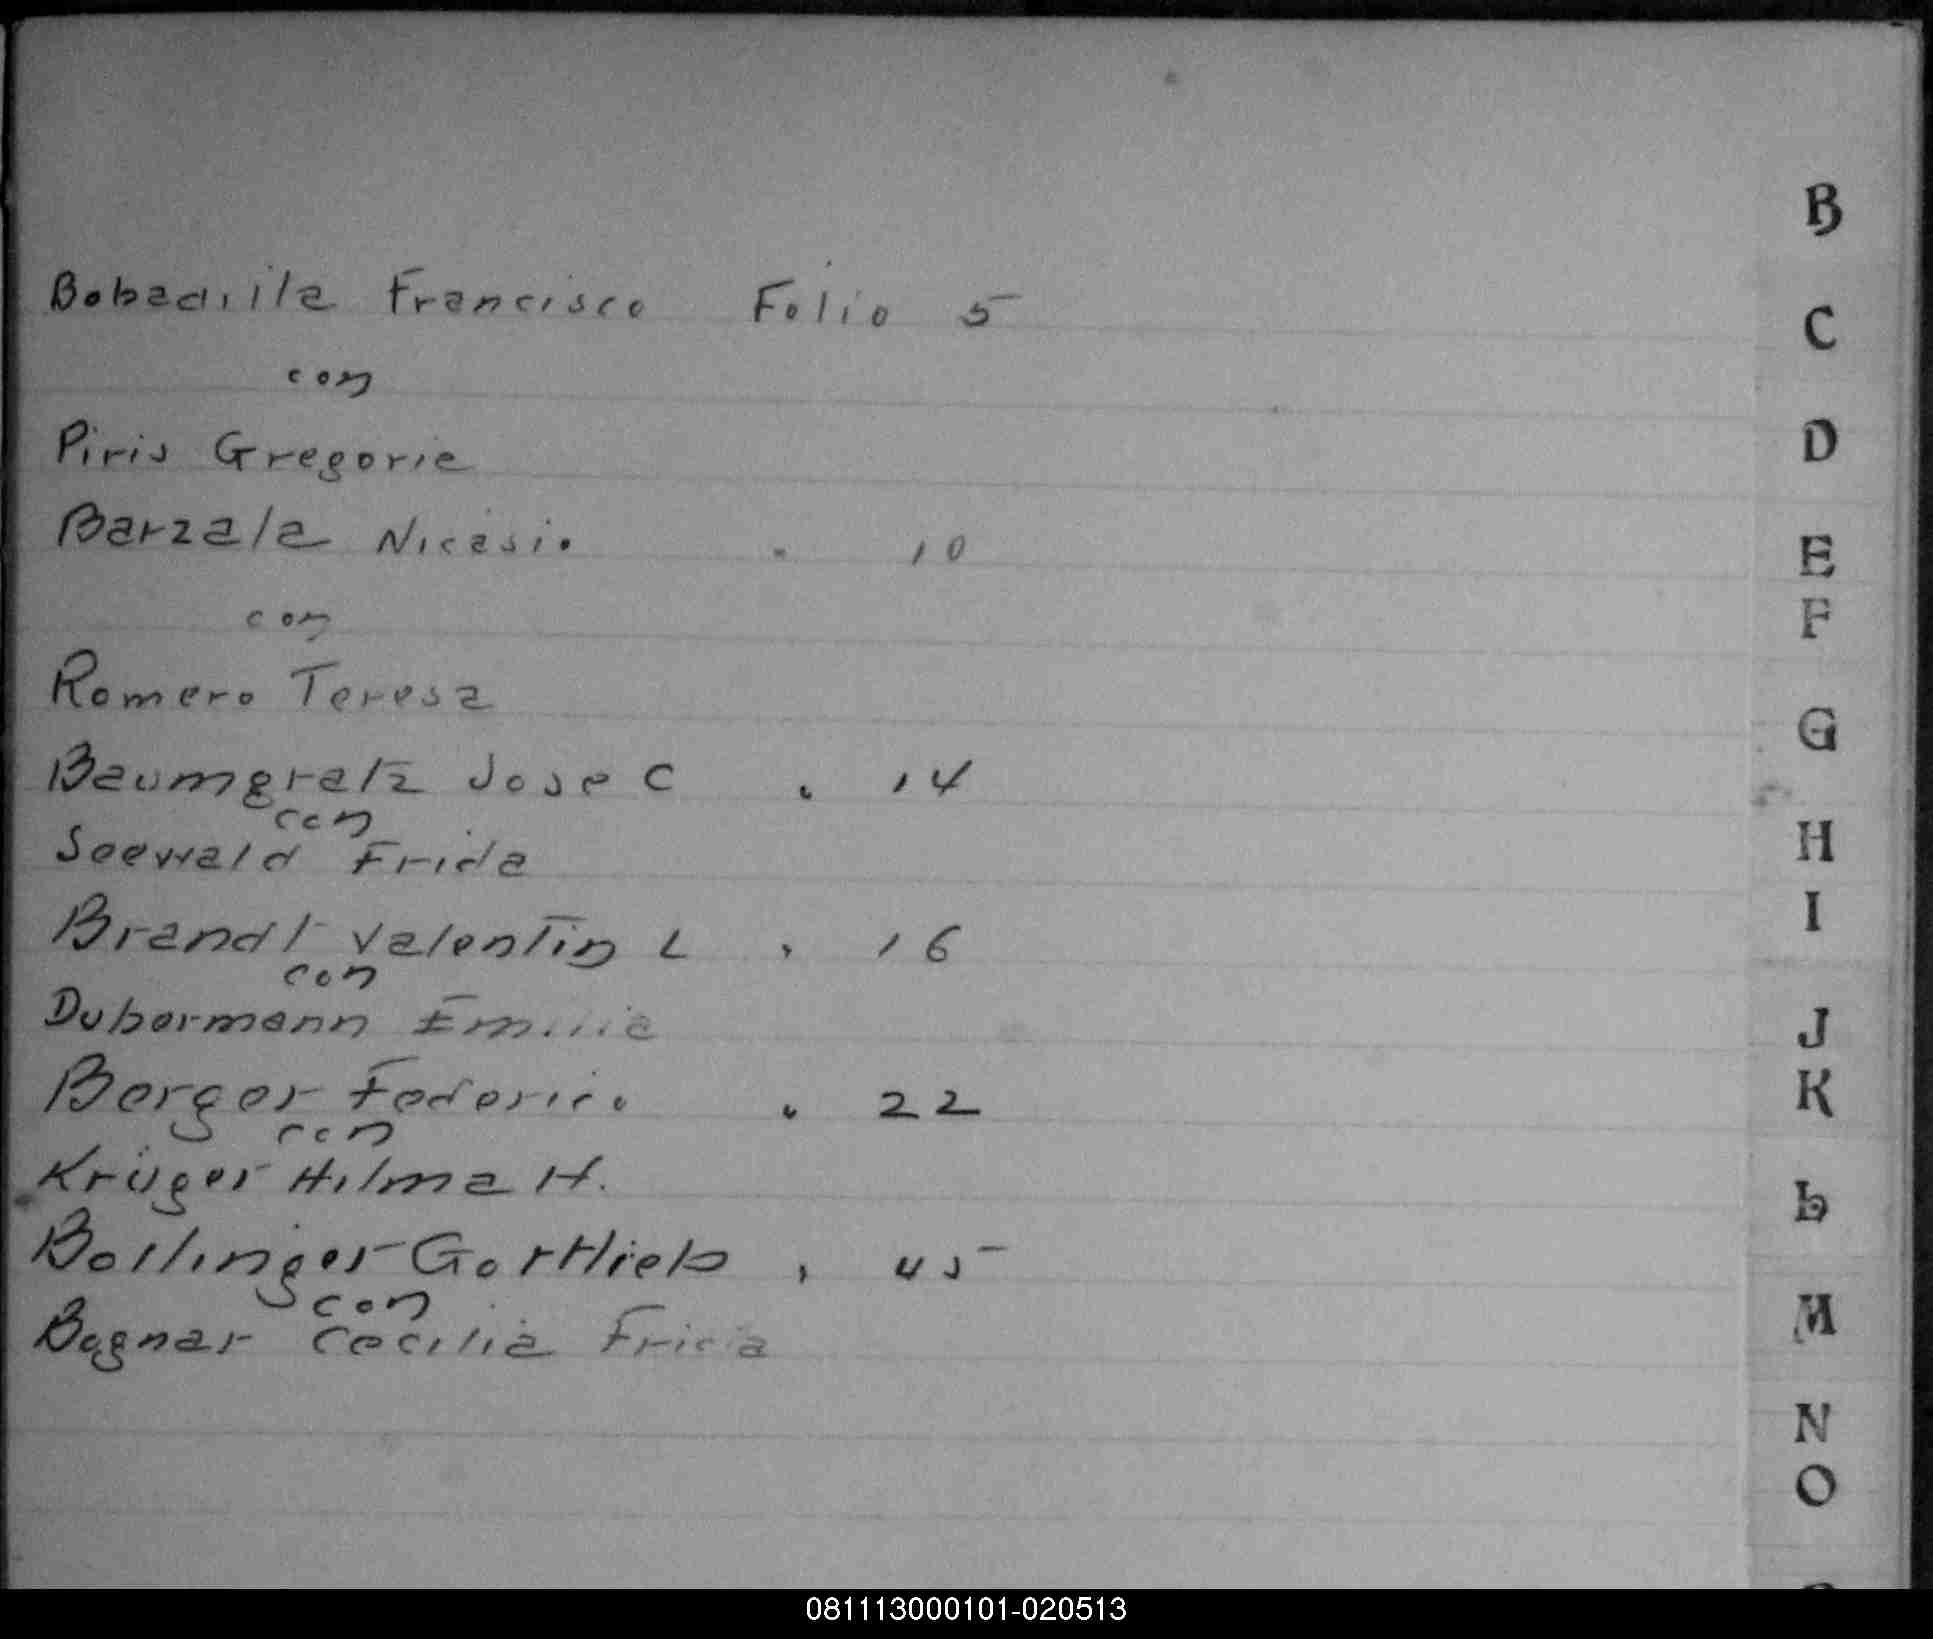 Bobadilla Francisco Folio 5
con
Piris Gregorie
Barzala Nicasio " 10
con
Romero Teresa
Baumgratz Jose C " 14
con
Seewald Frida
Brandt Valentin L " 16
con
Dubermann Emilia
Berger Federico " 22
con
Krüger Hilma H.
Bollinger Gottlieb " 45
con
Bognar Cecilia Frida
B
C
D
E
F
G
H
I
J
K
L
M
N
O
081113000101-020513